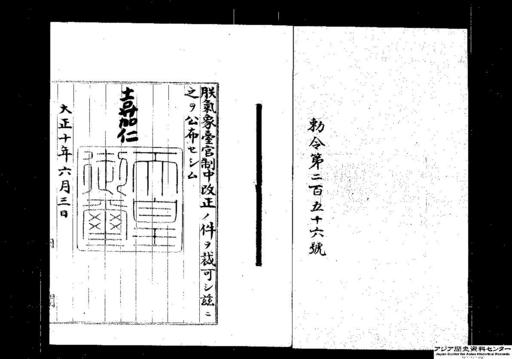 勅令第二百五十六號
朕氣象臺官制中改正ノ件ヲ裁可シ茲ニ
之ヲ公布セシム
嘉仁
天皇御璽
大正十年六月三日
アジア歴史資料センター
Japan Center for Asian Historical Records